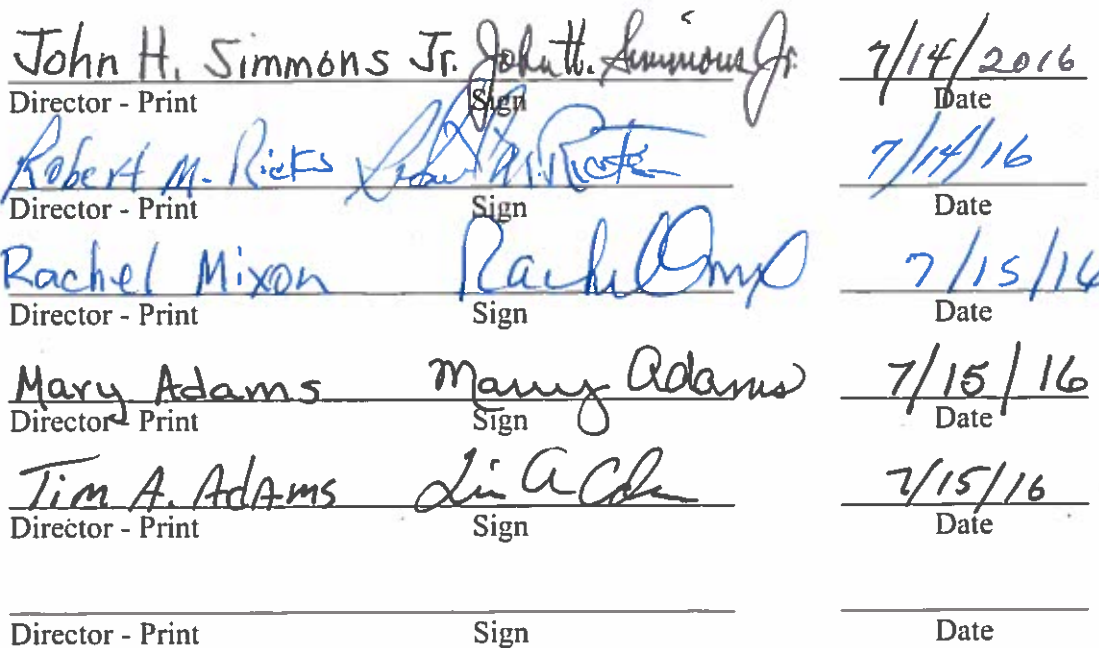 John H. Simmons Jr. John H. Simmons Jr. 7/14/2016
Director - Print Sign Date
Robert M. Ricks Robert M. Ricks 7/14/16
Director - Print Sign Date
Rachel Mixon Rachel 7/15/16
Director - Print Sign Date
Mary Adams Mary Adams 7/15/16
Director - Print Sign Date
Tim A. AdAms Tim A 7/15/16
Director - Print Sign Date
Director - Print Sign Date